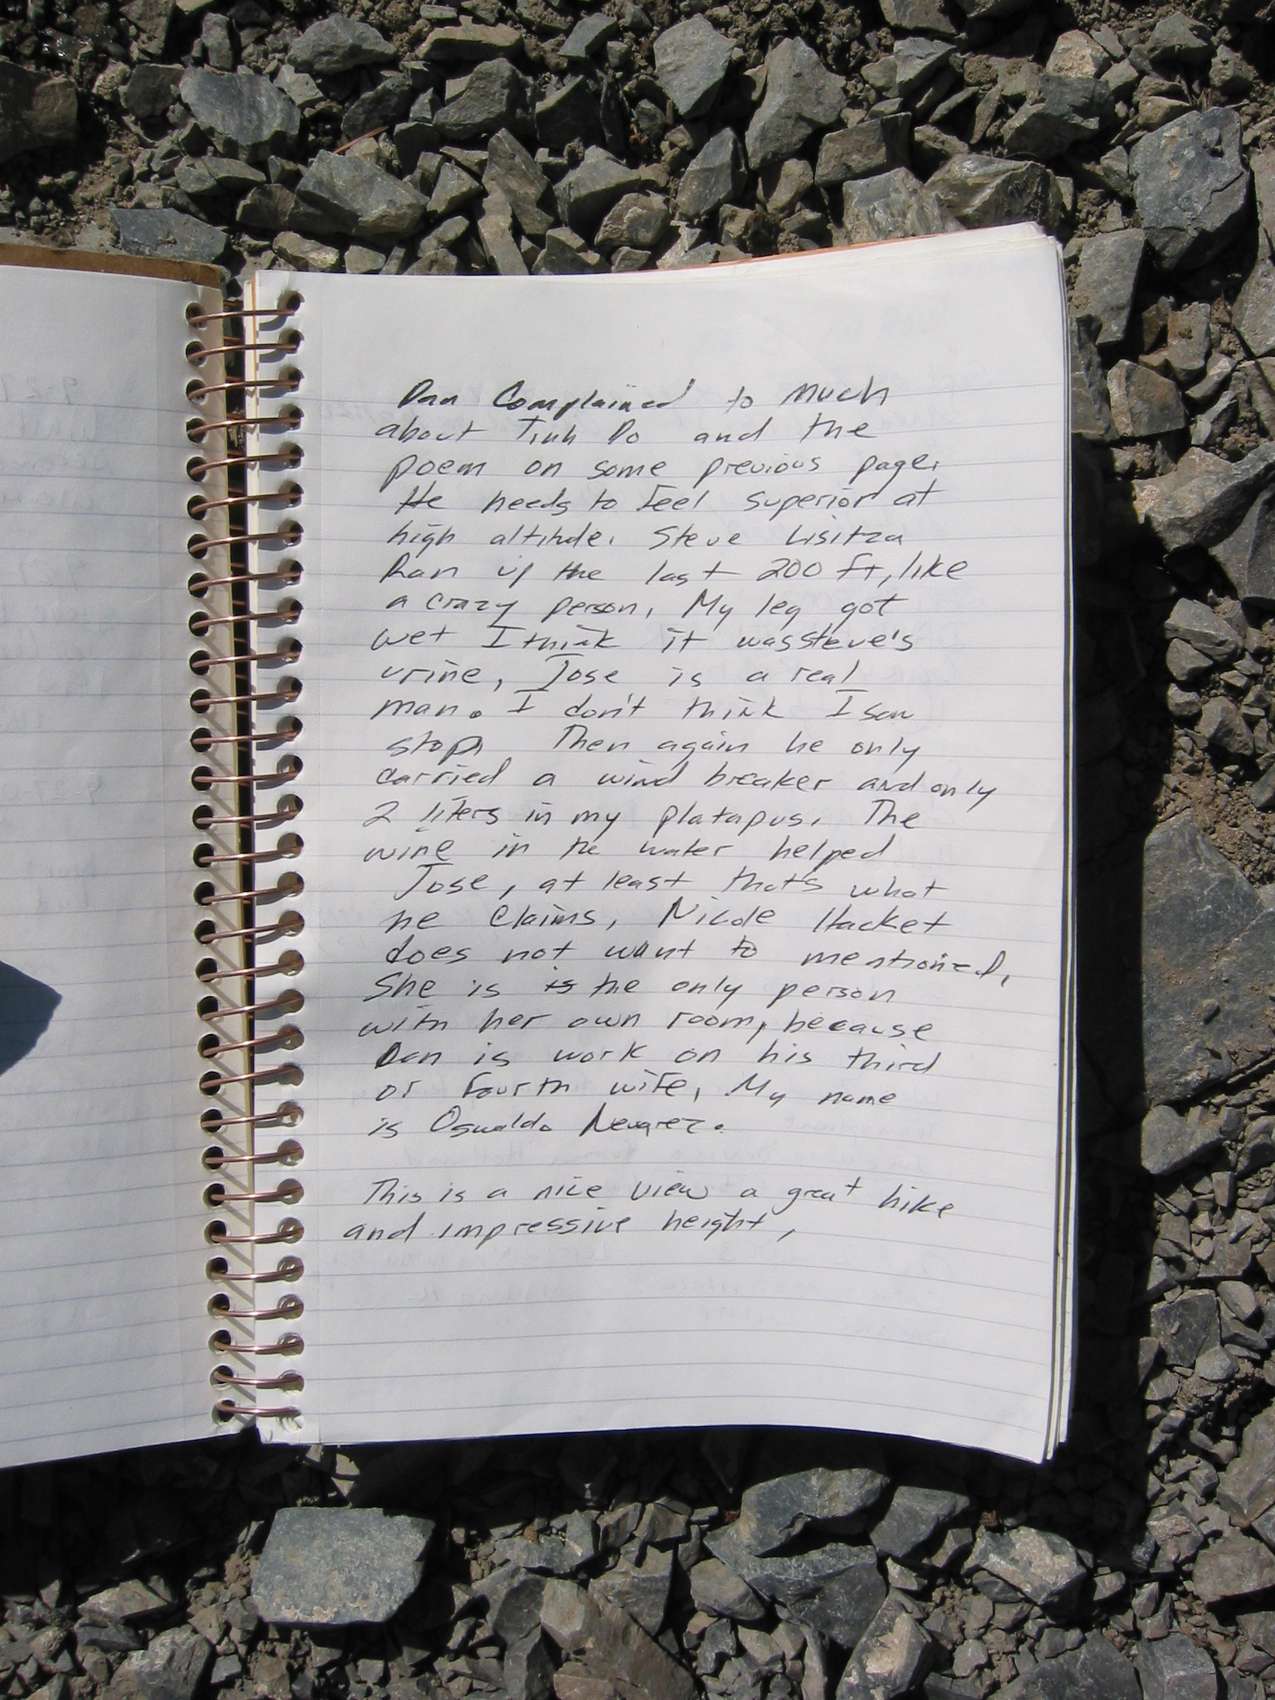 Dan Complained to Much
about Tinh Do and the
poem on some previous page.
He needs to feel superior at
high altitude. Steve Lisitza
Ran up the last 200 ft, like
a crazy person. My leg got
wet I think it was steve's
urine, Jose is a real
man. I don't think I saw
stop. Then again he only
carried a wind breaker and only
2 liters in my platapus. The
wine in the water helped
Jose, at least thats what
he claims, Nicole Hacket
does not want to mentioned,
She is is the only person
with her own room, because
Dan is work on his third
or fourth wife, My name
is Oswaldo Nevarez.
This is a nice view a great hike
and impressive height,